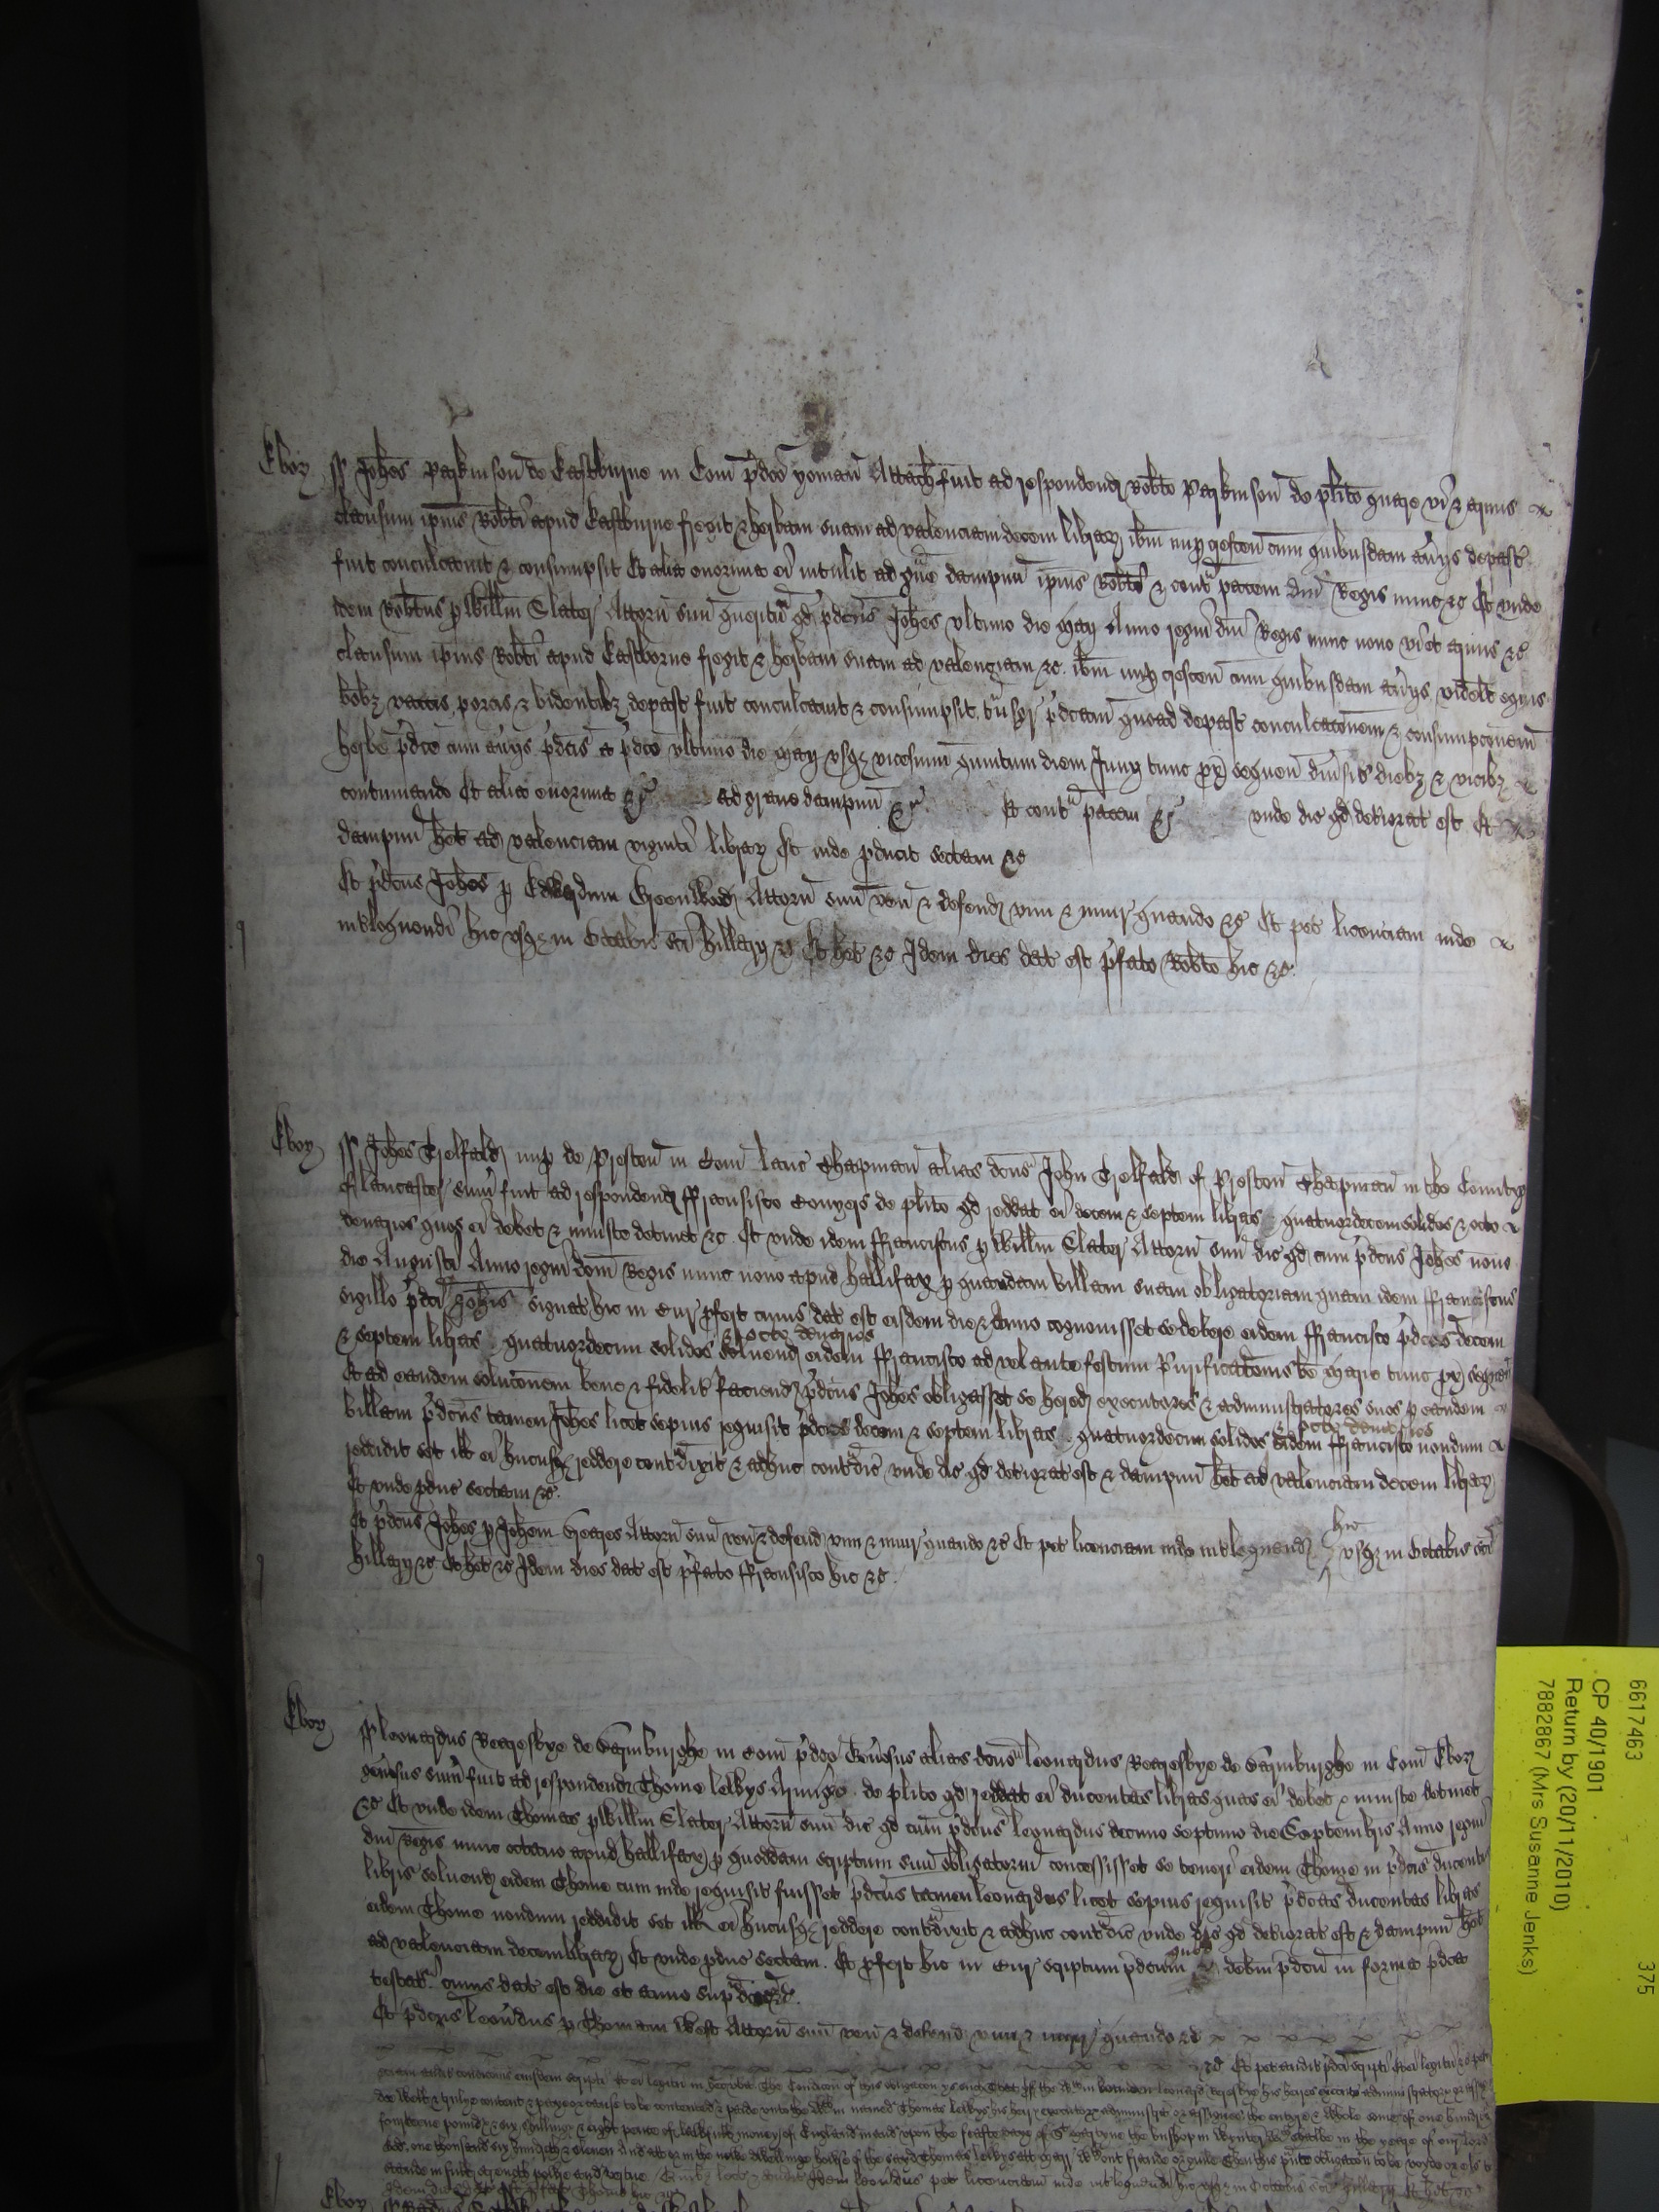 Ebor ss Johes Parkinson de Eastburne in Com p'dco yoman Attach fuit ad respondend Robto Parkinson de plito quare vi & armis
clausum ipius Robti apud Eastburne fregit & herbam suam ad valenciam decem librar ibm nup crescen cum quibusdam aviis depast
fuit conculcavit & consumpsit Et alia enormia ei intulit ad grave dampnu ipius Robti & contra pacem dni Regis nunc &c Et unde
idem Robtus p Willm Slater Attorn suu queritur qd p'dcus Johes ultimo die Maij Anno regni dni Regis nunc nono vi et armis &c
clausum ipius Robti apud Eastborne fregit & herbam suam ad valenciam &c. ibm nup crescen cum quibusdam aviis videlt equis
bobz vaccis porcis & bidentibz depast fuit conculcavit & consumpsit, p'dcam quoad depast conculcaconem & consumpconem
herbe p'dce cum aviis p'dcis a p'dco ultimo die Maij usqz vicesimum quintum diem Junij tunc px sequen divsis diebz & vicibz
continuando Et alia enormia &c ad grave dampnu &c Et contra pacem &c unde dic qd deteriorat est Et
dampnu het ad valenciam viginti librar Et inde pducit sectam &c
Et p'dcus Johes p Edwardum Greenwood Attorn suu ven & defend vim & iniur quando &c Et pet licenciam inde
inloquendi hic usqz in Octabis sci Hillarij &c Et het &c Idem dies dat est p'fato Robto hic &c.
Ebor ss Johes Threlfald nup de Preston in Com Lanc Chapman alias dcus John Threlfald of Preston Chapman in the County
of Lancaster sum fuit ad respondend Francisco Conyers de plito qd reddat ei decem & septem libras quatuordecem solidos & octo
denarios quos ei debet & iniuste detinet &c. Et unde idem Franciscus p Willm Slater Attorn suu dic qd cum p'dcus Johes nono
die Augusti Anno regni dom Regis nunc nono apud Hallifax p quandam billam suam obligatoriam quam idem Franciscus
sigillo p'dci Johis signat hic in Cur pfert cuius dat est eisdem die & Anno cognovisset se debere eidem Francisco p'dcas decem
& septem libras quatuordecim solidos & octo denarios solvend eidem Francisco ad vel ante festum Purificacionis be Marie tunc px sequen
Et ad eandem soluconem bene & fidelit faciend p'dcus Johes obligasset se hered executores & administratores suos p eandem
billam p'dcus tamen Johes licet sepius requisit p'dcas decem & septem libras quatuordecim solidos & octo denarios eidem Francisco nondum
reddidit set ill ei hucusqz reddere contradixit & adhuc contradic unde dic qd deteriorat est & dampnu het ad valenciam decem librar
Et unde pduc sectam &c.
Et p'dcus Johes p Johem Attorn suu ven & defend vim & iniur quando &c Et pet licenciam inde inloquend hic usqz in Octabis sci
Hillarij &c Et het &c Idem dies dat est p'fato Francisco hic &c.
Ebor ss Leonardus Reresbye de in Com p'dco Genosus alias dcus Leonardus Reresbye de in Com Ebor
genosus sum fuit ad respondend Thome Lellys Armigo de plito qd reddat ei ducentas libras quas ei debet & iniuste detinet
&c Et unde idem Thomas p Willm Slater Attorn suu dic qd cum p'dcus Leonardus decimo septimo die Septembris Anno regni
dni Regis nunc octavo apud Hallifax p quoddam scriptum suu obligatoriu concessisset se teneri eidem Thome in p'dcis ducentis
libris solvend eidem Thome cum inde requisit fuisset p'dcus tamen Leonardus licet sepius requisit p'dcas ducentas libras
eidem Thome nondum reddidit set ill ei hucusqz reddere contradixit & adhuc contradic unde dic qd deteriorat est & dampnu het
ad valenciam decem librar Et unde pduc sectam. Et pfert hic in Cur scriptum p'dcum quod debm p'dcm in forma p'dca
testat cuius dat est die et anno supdcis &c.
Et p'dcus Leonardus p Thomam West Attorn suu ven & defend vim & iniur quando &c
Et pet audit p'dci scripti Et ei legitur &c pet
eciam audit condicionis eiusdem scripti Et ei legitur in hec verba The Condicon of this obligacon ys such that If the within bounden Leonard Reresbye his heires executors administrators or
do well & trulye content & paye or cause to be contented & paide unto the within named Thomas Lellys his heires executors administrat or assignes the entyre & whole some of one hundred
pounde six shillings & eight pence of lawfull money of England in and upon the feaste daye of St Martyne the bushop in Wynter in the yeare of our Lord
god, one thousand six hundreth & eleven And att or in the nowe dwellinge howse of the sayd Thomas Lellys without fraude or guile Then this obligacon to be voyde or els to
stande in full strength power and vertue. Idem Leonardus pet licenciam inde inloquendi hic usqz in Octabis sci Hillarij Et het &c
Idem dies dat est p'fato Thome hic &c
Ebor
6617463 375
CP 40/1901
Return by (20/11/2010)
7882867 (Mrs Susanne Jenks)